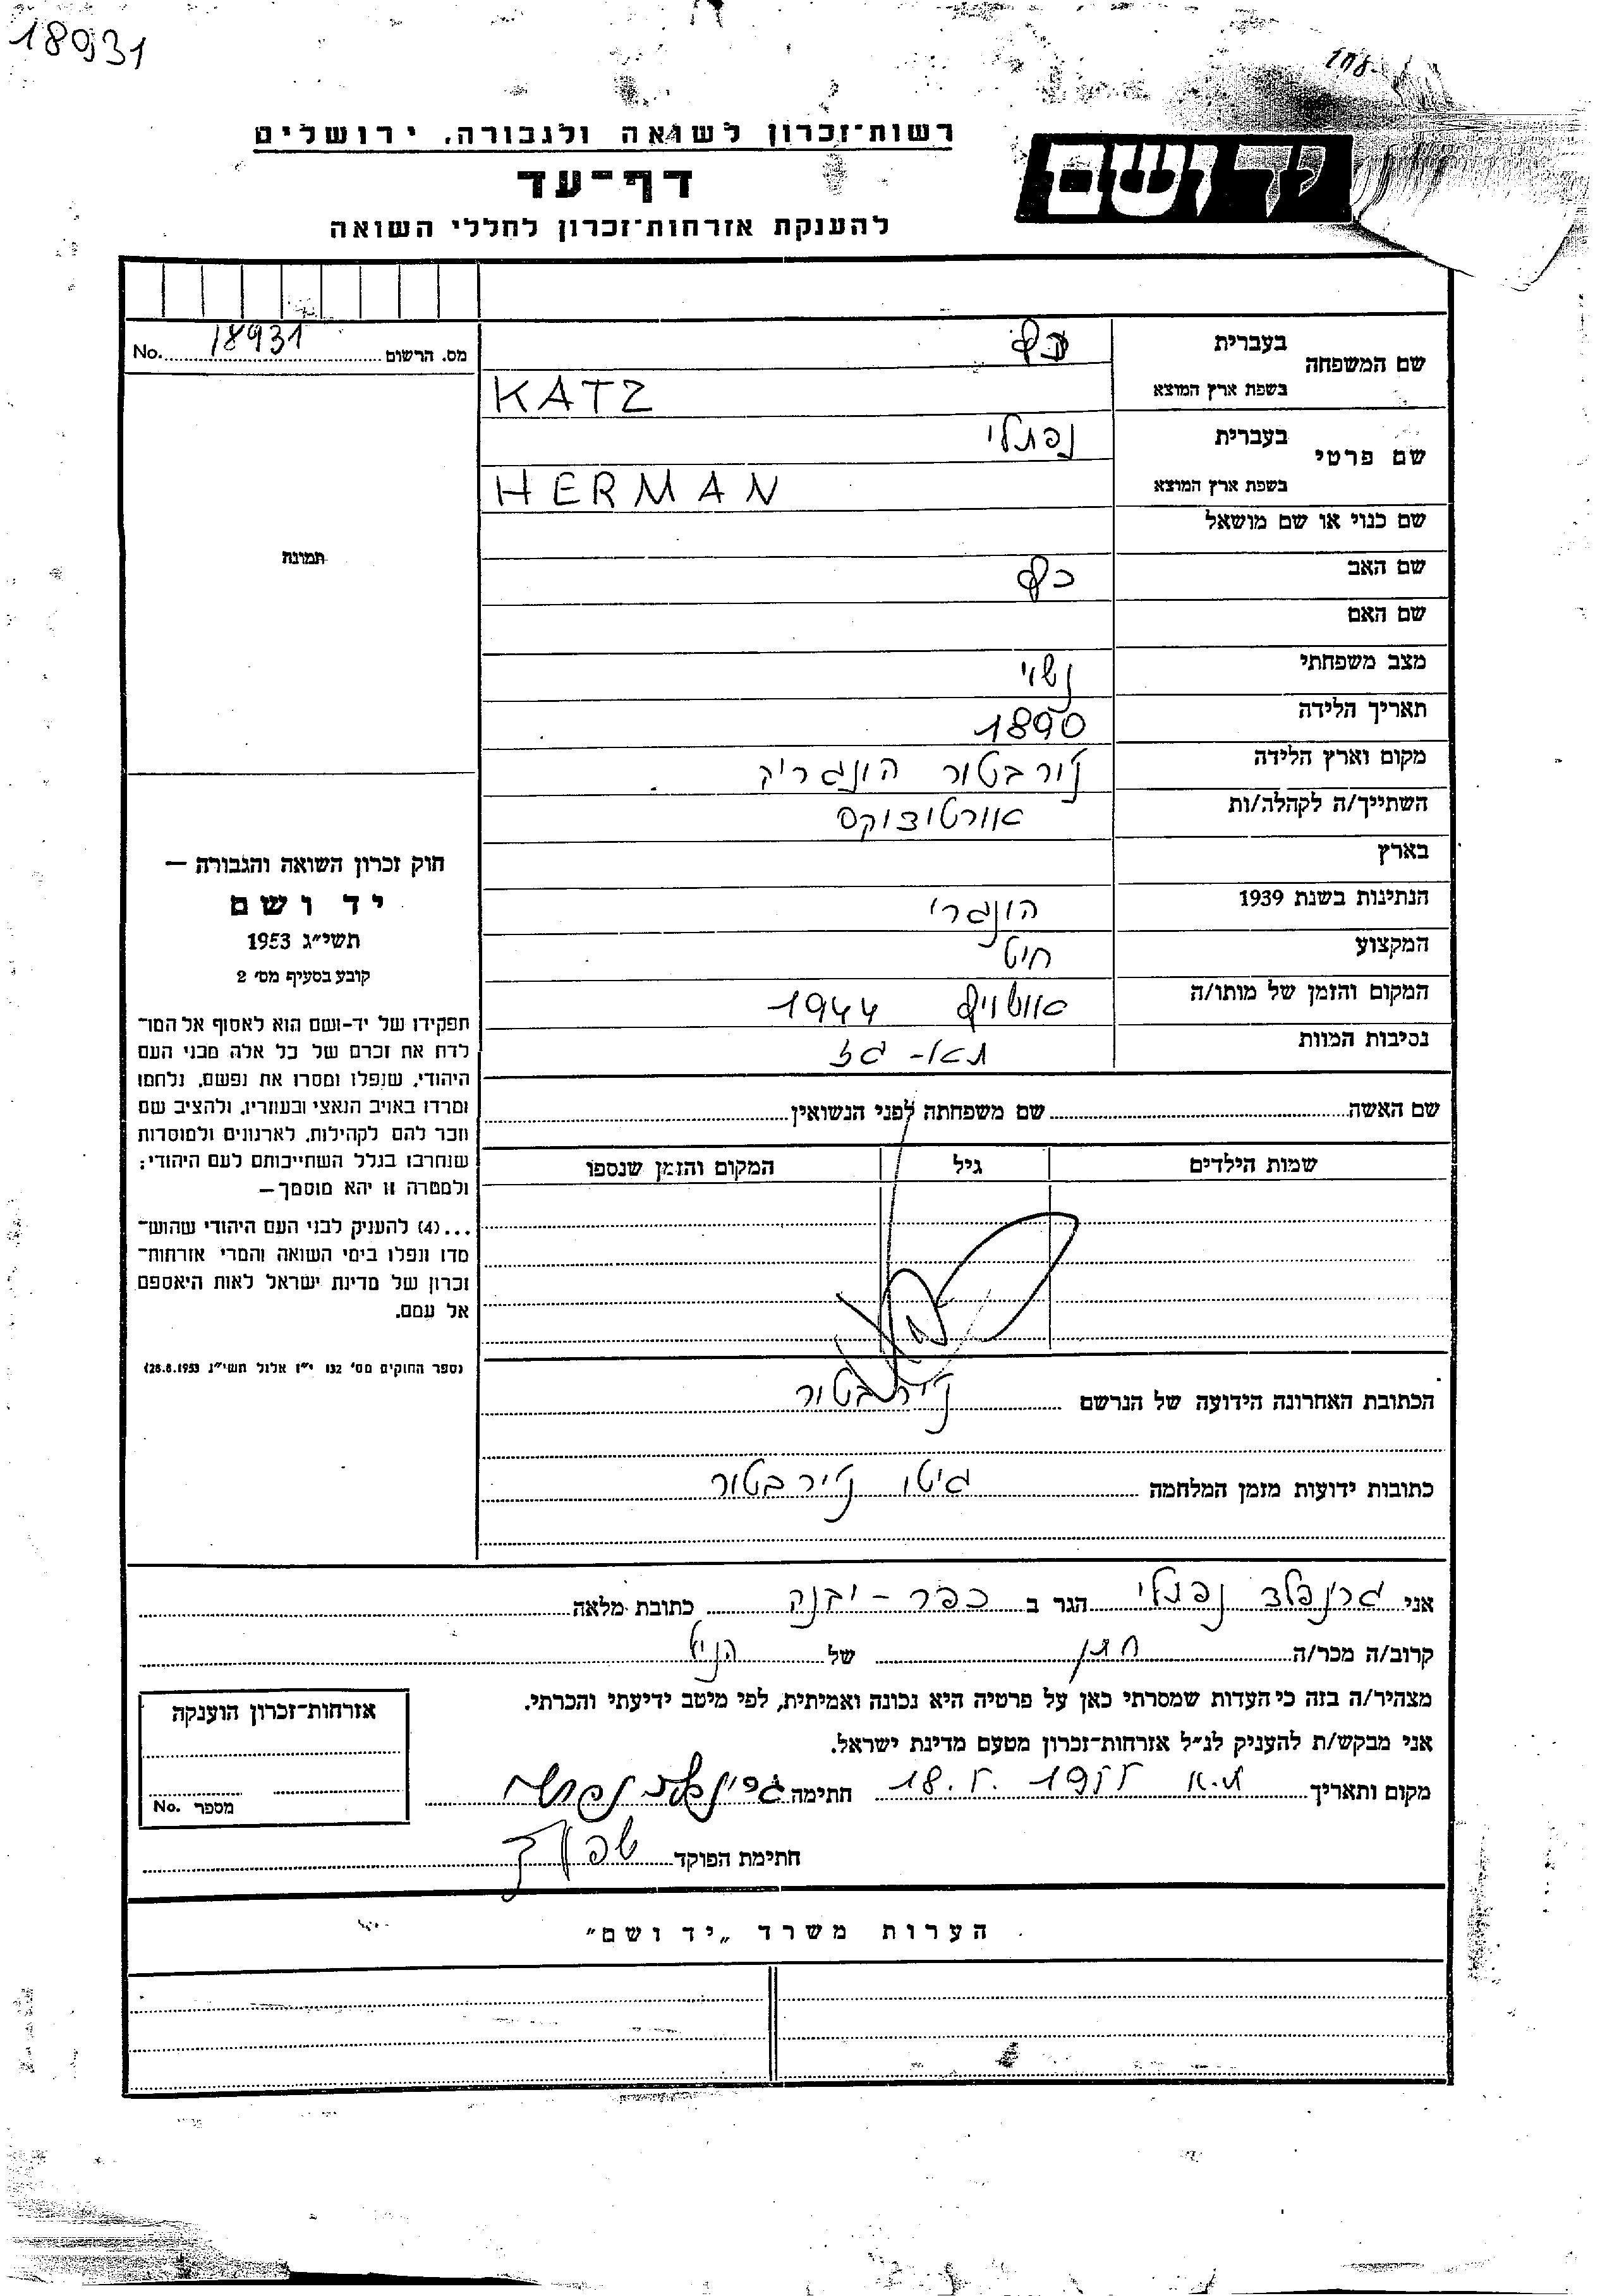 18931
רשות־זכרון לשואה ולגבורה, ירושלים
יד ושם
דף־עד
להענקת אזרחות־זכרון לחללי השואה
שם המשפחה
בעברית
כץ
בשפת ארץ המוצא
KATZ
שם פרטי
בעברית
נפתלי
בשפת ארץ המוצא
HERMAN
שם כנוי או שם מושאל
שם האב כץ
שם האם
מצב משפחתי נשוי
תאריך הלידה 1890
מקום וארץ הלידה נירבטור הונגריה
השתייך/ה לקהלה/ות אורטודוקס
בארץ
הנתינות בשנת 1939 הונגרי
המקצוע חיט
המקום והזמן של מותו/ה אושויץ 1944
נסיבות המוות תא-גז
שם האשה שם משפחתה לפני הנשואין
שמות הילדים גיל המקום והזמן שנספו
הכתובת האחרונה הידועה של הנרשם נירבטור
כתובות ידועות מזמן המלחמה גיטו נירבטור
מס. הרשום 18931 No.
תמונת
חוק זכרון השואה והגבורה —
יד ושם
תשי״ג 1953
קובע בסעיף מס׳ 2
תפקידו של יד-ושם הוא לאסוף אל המו־
לדת את זכרם של כל אלה מבני העם
היהודי, שנפלו ומסרו את נפשם, נלחמו
ומרדו באויב הנאצי ובעוזריו, ולהציב שם
וזכר להם לקהילות, לארגונים ולמוסדות
שנחרבו בגלל השתייכותם לעם היהודי;
ולמטרה זו יהא מוסמך—
...(4) להעניק לבני העם היהודי שהוש־
מדו ונפלו בימי השואה והמרי אזרחות־
זכרון של מדינת ישראל לאות היאספם
אל עמם.
(ספר החוקים מס׳ 132 י״ז אלול תשי״ג 28.8.1953)
אני גרינפלד נפתלי הגר ב כפר - יבנה כתובת מלאה
קרוב/ה מכר/ה חתן של הנ״ל
מצהיר/ה בזה כי העדות שמסרתי כאן על פרטיה היא נכונה ואמיתית, לפי מיטב ידיעתי והכרתי.
אני מבקש/ת להעניק לנ״ל אזרחות-זכרון מטעם מדינת ישראל.
מקום ותאריך ת.א 18.5.1955 חתימה גרינפלד נפתלי
חתימת הפוקד
אזרחות־זכרון הוענקה
מספר No.
הערות משרד „יד ושם״